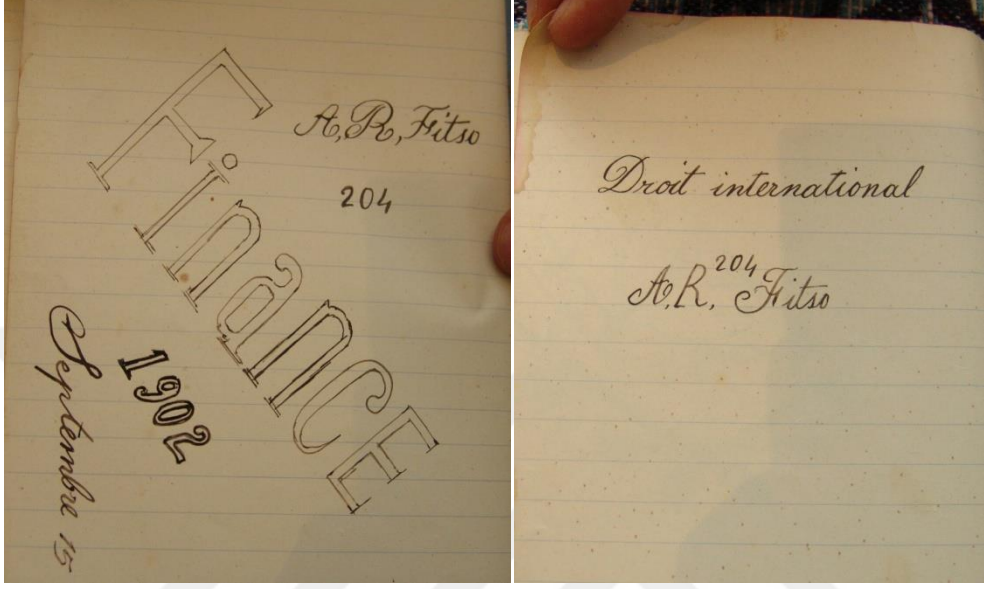 Finance
A, R, Fitso
204
1902
Septembre 15
Droit international
204
A, R, Fitso